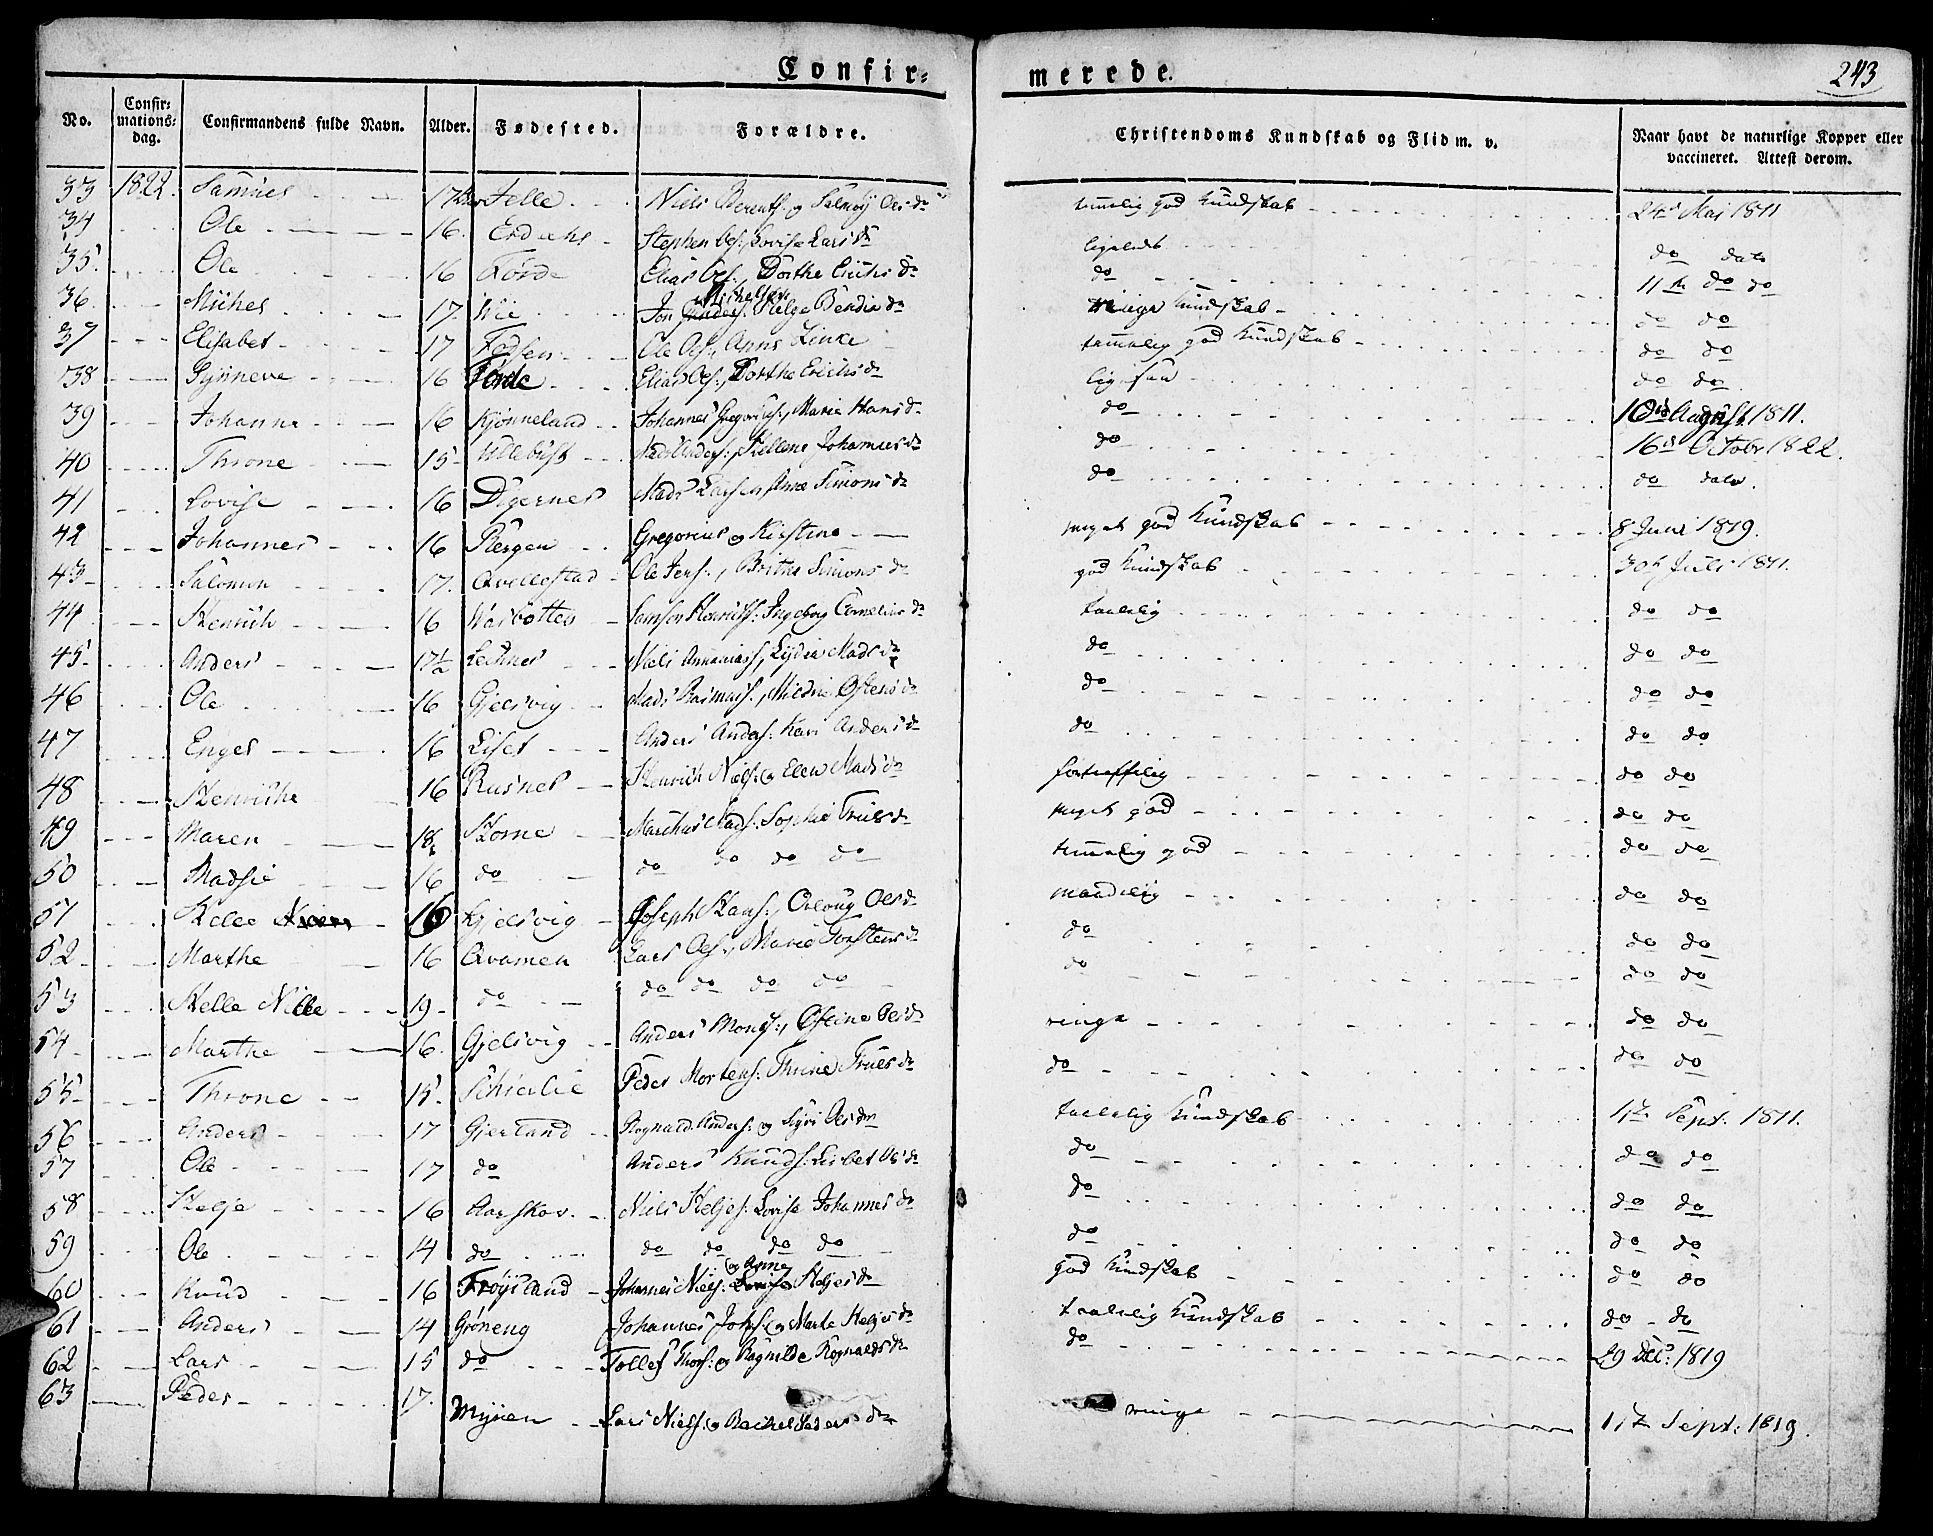 Confir= merede. 243
No. Confir=mations=dag. Confirmandens fulde Navn. Alder. Fødested. Forældre. Christendoms Kundskab og Flid m. v. Naar havt de naturlige Kopper eller vaccineret. Attest derom.
33 1822. Samuel 17 Felle Niels Berents: og Oles dr temelig god Kundskab 24de Mai 1811
34 Ole 16. Stephen Ols: Lovise Lars dr ligeledes do dato
35. Ole 16 Førde Elias Ols:, Dorthe Erichs dr do 11te do do
36 Michel 17. Wie Jon Michelsen Helge Bendix dr ringe Kundskab do do
37 Elisabet 17 Ole Ols:, Anne temmelig god Kundskab do do
38 Synneve 16 Førde Elias Ols:, Dorthe Erichs dr lig. saa do do
39 Johanne 16 Kjønneland Johannes Gregorius:, Marie Hans dr do 10de August 1811.
40 Throne 15 Ullebust Mads Anders:, Hellene Johannes dr do 16de Octobr 1822.
41 Lovise 16 Digernes Mads Larsen Anne Simons dr do do dato.
42 Johannes 16 Bergen Gregorius og Kirstine meget god Kundskab 8 Juni 1819.
43 Salomon 17. Qvellestad Ole Jens:, Brithe Simons dr god Kundskab 30te Juli 1811.
44 Henrich 16 Samson Henrichs: Ingeborg Cornelius dr taalelig do do
45 Anders 17½ Lechnes Niels Annanias:, Lydia Mads dr do do do
46 Ole 16 Gjelsvig Mads Rasmus:, Mildrie Ostens dr do do do
47 Engel 16 Liset Anders Anders: Kari Anders dr do do do
48 Henriche 16 Rusnes Henrich Niels: og Elen Mads dr fortreffelig do do
49 Maren 18 Horne Marchus Mads: Sophie Truels dr meget god do do
50 Madsie 16 do do do do do temmelig god do do
51 Helle 16 Gjelsvig Joseph Hans:, Oloug Ols dr maadelig do do
52 Marthe 16 Qvamen Lars Ols:, Marie Torstens dr do do do
53 Helle Nille 19 do do do do do do do do
54 Marthe 16. Gjelsvig Anders Mons:, Ostine Ols dr ringe do do
55 Throne 15. Schierlie Peder Mortens: Thrine Truels dr do do do
56 Anders 17 Gjerland Rognald Anders: og Sigri Ols dr taalelig Kundskab 17de Sept. 1811.
57 Ole 17 do Anders Knuds: Lisbet Ols dr do do do
58 Helje 16 Aarskov Niels Heljes: Lovise Johannes dr do do do
59 Ole 14 do do do do do do do do
60 Knud 16 Frøysland Johannes Niels: og Anne Heljes dr god Kundskab do do
61 Anders 14 Grøneng Johannes Johs: og Marte Heljes dr taalelig Kundskab do do
62 Lars 15 do Tollef Thors: og Ragnilde Rognalds dr do 29 Dec: 1819
63 Peder 17. Myren Lars Niels: og Rachel Peders dr ringe 17de Sept: 1819.